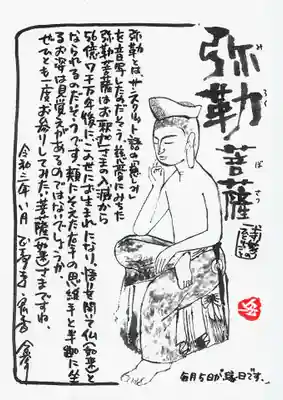 弥勒菩薩
み
ろく
ぼ
さつ
弥勒とは、サンスクリット語の「慈しみ」
を音写したのだそう、慈しみにみちた
弥勒菩薩はお釈迦さまの入滅から
56億7千万年後に、この世にお生まれになり、悟りを開いて仏(如来)と
なられるのだそうです。頬にそえた右手の思惟手と半跏に坐
るお姿は見覚えがあるのではないでしょうか
ぜひとも一度お参りしてみたい菩薩(如来)さまですね。
令和三年
毎月5日が縁日です。